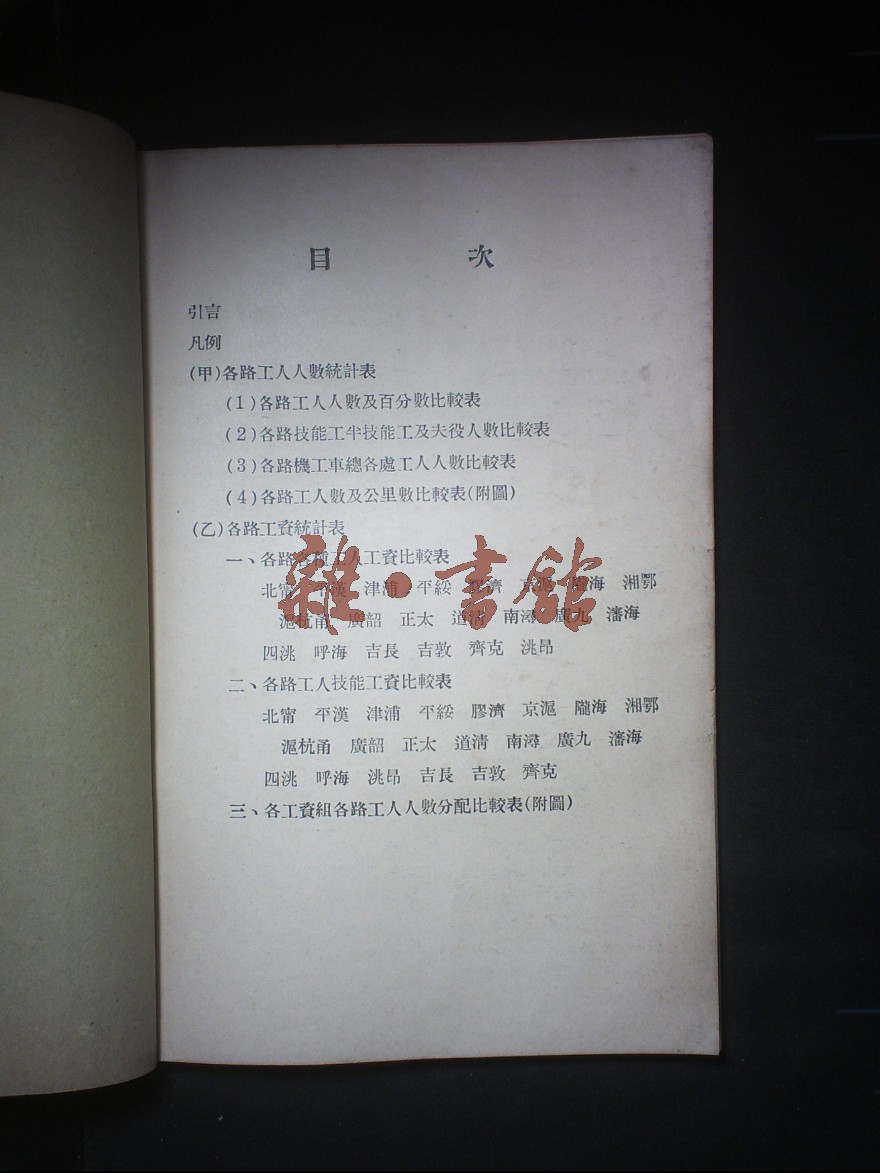 目次
引言
凡例
(甲)各路工人人數統計表
(1)各路工人人數及百分數比較表
(2)各路技能工半技能工及夫役人數比較表
(3)各路機工車總各處工人人數比較表
(4)各路工人數及公里數比較表(附圖)
(乙)各路工資統計表
一、各路各種工人工資比較表
北甯 平漢 津浦 平綏 膠濟 京滬 隴海 湘鄂
滬杭甬 廣韶 正太 道清 南潯 廣九 瀋海
四洮 呼海 吉長 吉敦 齊克 洮昂
二、各路工人技能工資比較表
北甯 平漢 津浦 平綏 膠濟 京滬 隴海 湘鄂
滬杭甬 廣韶 正太 道清 南潯 廣九 瀋海
四洮 呼海 洮昂 吉長 吉敦 齊克
三、各工資組各路工人人數分配比較表(附圖)
雜·書館